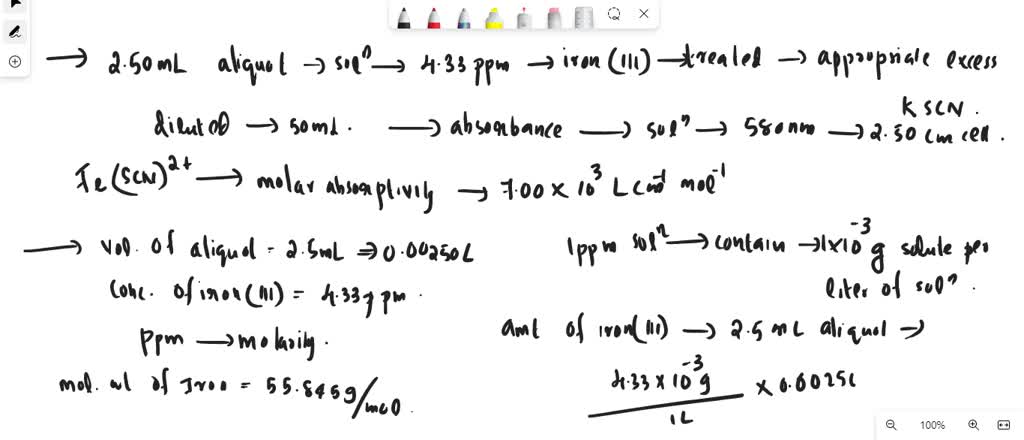 → 2.50mL aliquot → solⁿ → 4.33 ppm → iron (III) → treated → appropriate excess
KSCN.
diluted → 50mL. → absorbance → solⁿ → 580nm → 2.50 cm cell.
Fe(SCN)²⁺ → molar absorptivity → 7.00 × 10³ L cm⁻¹ mol⁻¹
→ vol. of aliquot = 2.5mL ⇒ 0.00250L
conc. of iron(III) = 4.33 ppm.
ppm → molarity.
mol. wt of Iron = 55.845g/mol.
1ppm solⁿ → contain → 1×10⁻³ g solute per
liter of solⁿ.
amt of iron(III) → 2.5 mL aliquot →
4.33 × 10⁻³ g / 1L × 0.0025L
100%